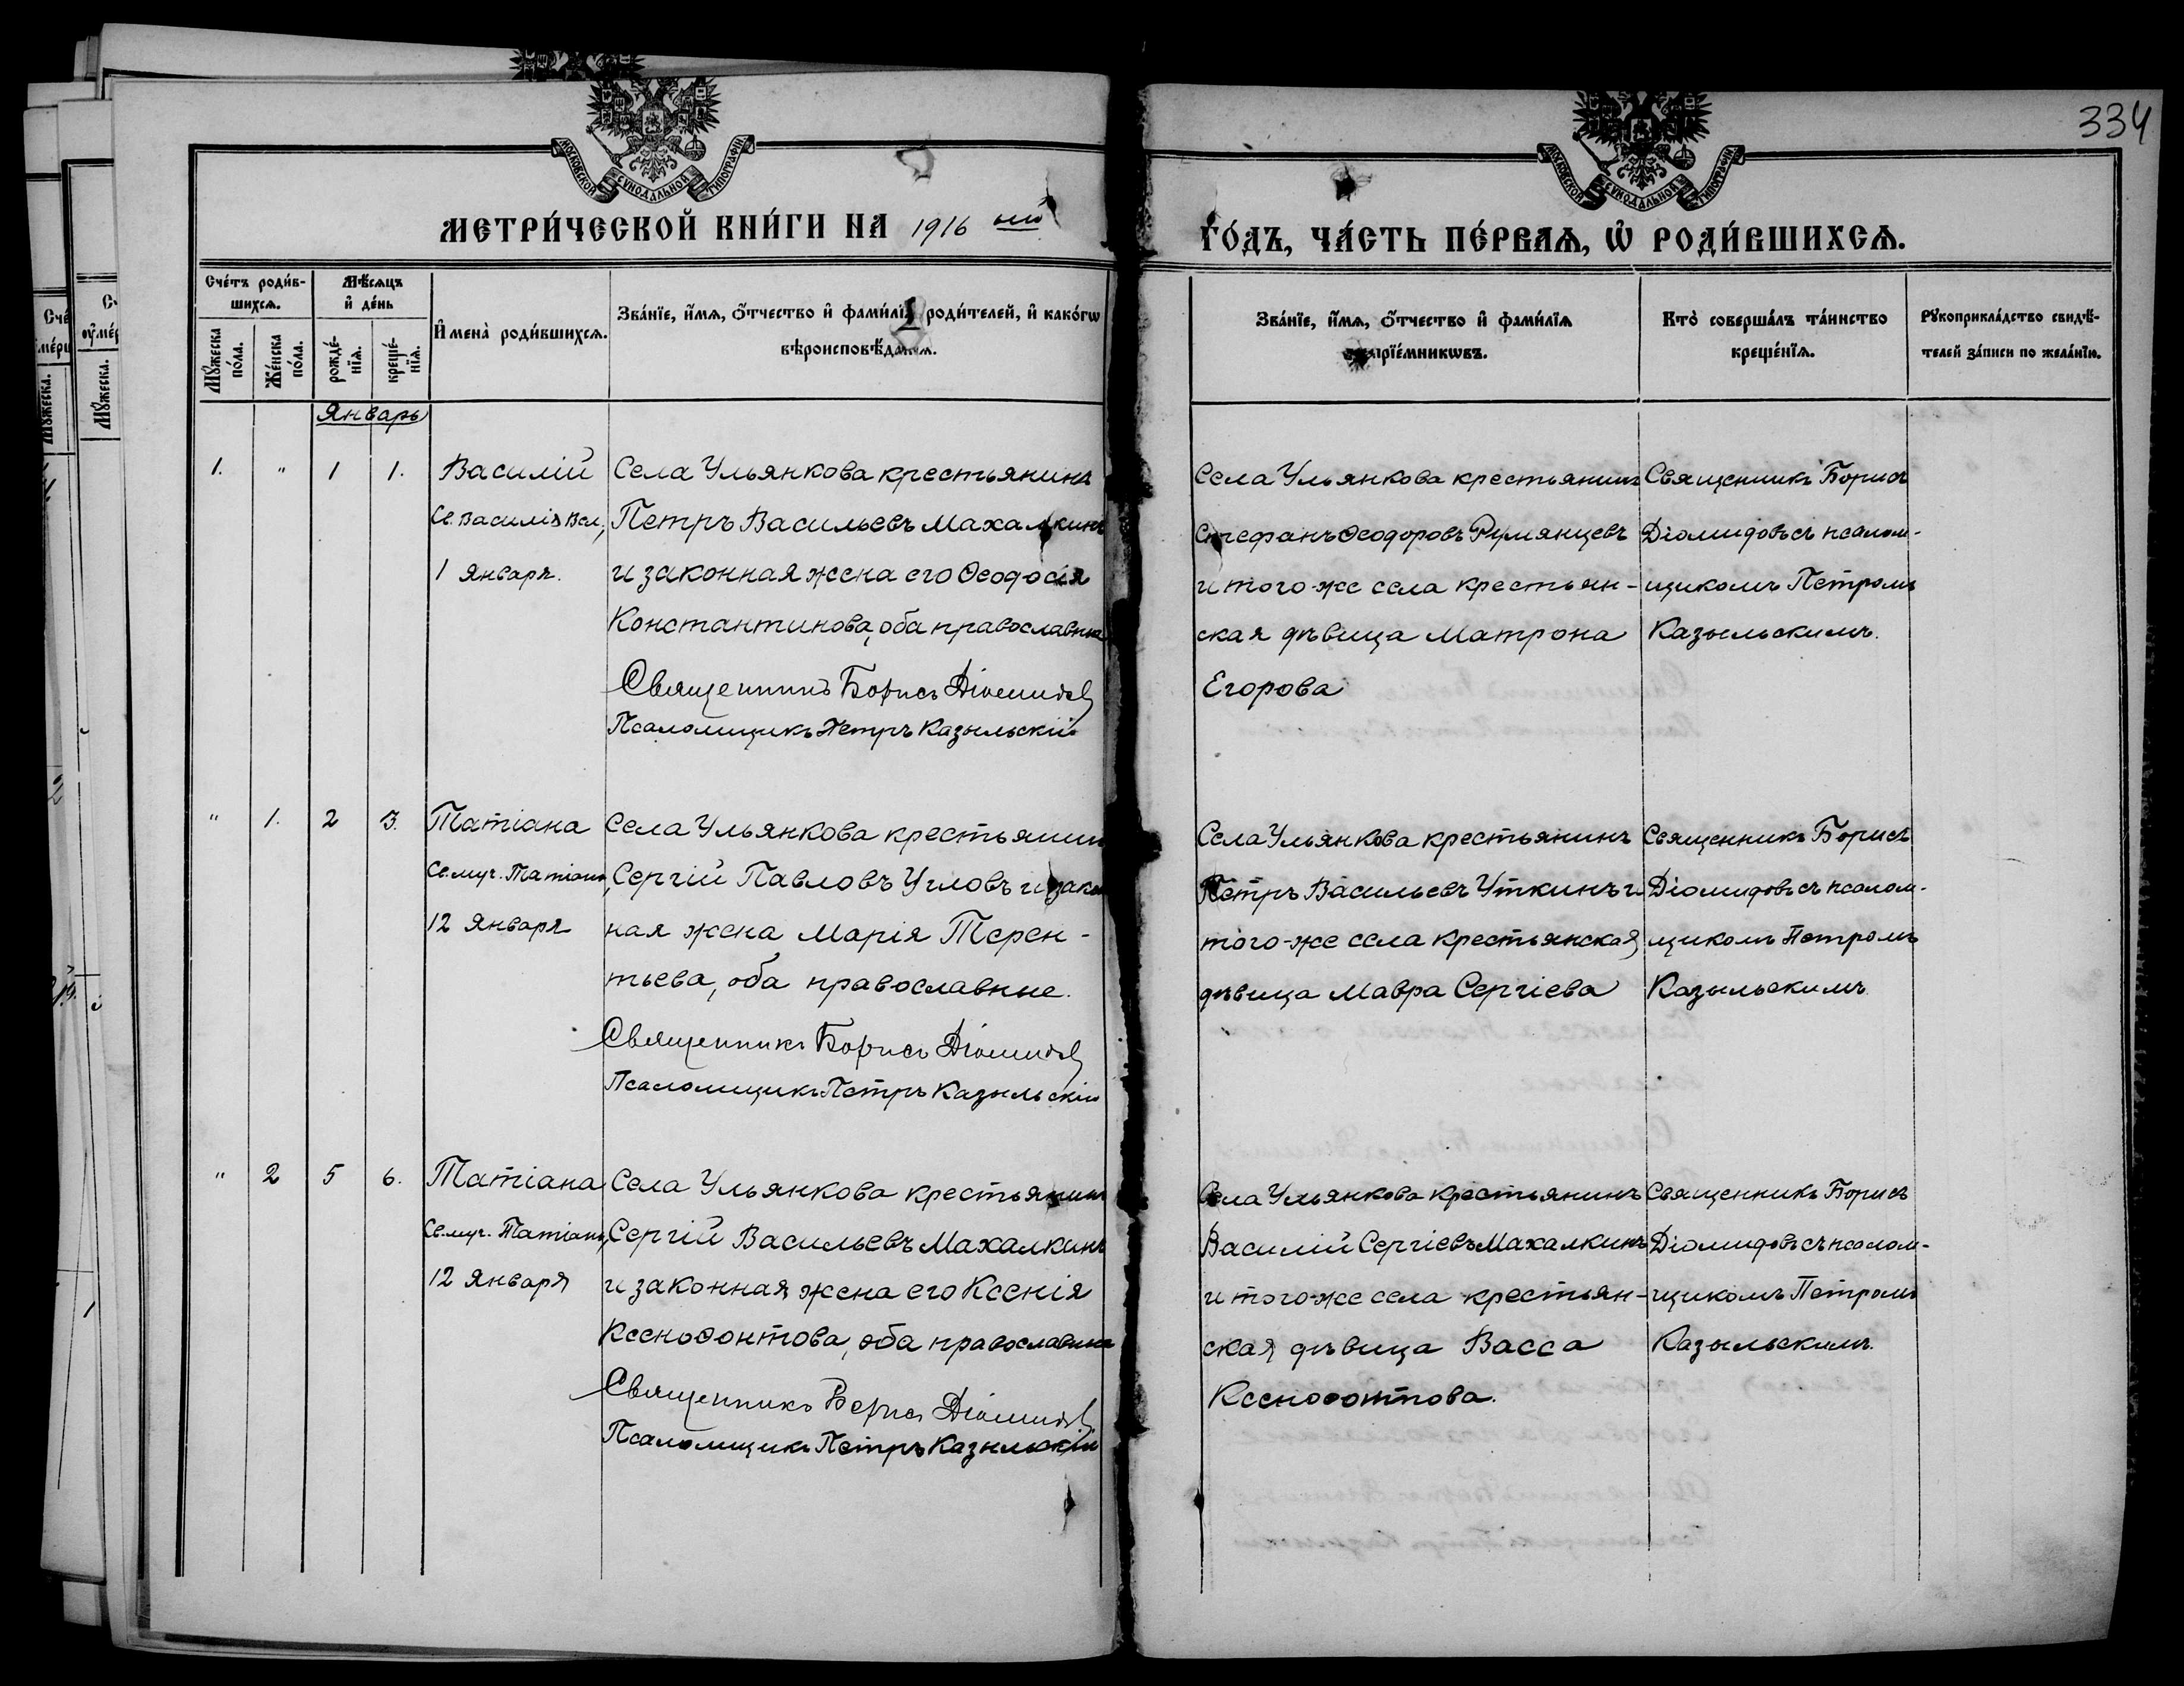 334
МОСКОВСКОЙ СѴНОДАЛЬНОЙ ТИПОГРАФІИ
МОСКОВСКОЙ СѴНОДАЛЬНОЙ ТИПОГРАФІИ
МЕТРИ́ЧЕСКОЙ КНИ́ГИ НА 1916 ый
ГО́ДЪ, ЧА́СТЬ ПЕ́РВАѦ, Ѡ҃ РОДИ́ВШИХСѦ.
Сче́тъ роди́в-
шихсѧ.
Мꙋ́жеска
по́ла.
Же́нска
по́ла.
Мѣ́сѧцъ
и҆ де́нь
рожде́-
нїѧ.
креще́-
нїѧ.
И҆мена̀ роди́вшихсѧ.
Зва́нїе, и҆́мѧ, ѻ҆́тчество и҆ фами́лїѧ роди́телей, и҆ како́гѡ
вѣроисповѣ́данїѧ.
Зва́нїе, и҆́мѧ, ѻ҆́тчество и҆ фами́лїѧ
воспрїе́мникѡвъ.
Кто̀ соверша́лъ та́инство
креще́нїѧ.
Рꙋкоприкла́дство свидѣ́-
телей за́писи по жела́нїю.
Январь
1. " 1 1.
Василій
Св. Василія Вел.,
1 января.
Села Ульянкова крестьянинъ
Петръ Васильевъ Махалкинъ
и законная жена его Ѳеодосія
Константинова, оба православные
Священникъ Борисъ Діомидовъ
Псаломщикъ Петръ Казыльскій
Села Ульянкова крестьянинъ
Стефанъ Ѳеодоровъ Румянцевъ
и того-же села крестьян-
ская дѣвица Матрона
Егорова
Священникъ Борисъ
Діомидовъ съ псалом-
щикомъ Петромъ
Казыльскимъ.
" 1. 2 3.
Татіана
Св. муч. Татіаны,
12 января
Села Ульянкова крестьянинъ
Сергій Павловъ Угловъ и закон
ная жена Марія Терен-
тьева, оба православные.
Священникъ Борисъ Діомидовъ
Псаломщикъ Петръ Казыльскій
Села Ульянкова крестьянинъ
Петръ Васильевъ Уткинъ и
того-же села крестьянская
дѣвица Мавра Сергіева
Священникъ Борисъ
Діомидовъ съ псалом-
щикомъ Петромъ
Казыльскимъ.
" 2 5 6.
Татіана
Св. муч. Татіаны,
12 января
Села Ульянкова крестьянинъ
Сергій Васильевъ Махалкинъ
и законная жена его Ксенія
Ксеноѳонтова, оба православные
Священникъ Борисъ Діомидовъ
Псаломщикъ Петръ Казыльскій
Села Ульянкова крестьянинъ
Василій Сергіевъ Махалкинъ
и того-же села крестьян-
ская дѣвица Васса
Ксеноѳонтова.
Священникъ Борисъ
Діомидовъ съ псалом-
щикомъ Петромъ
Казыльскимъ.